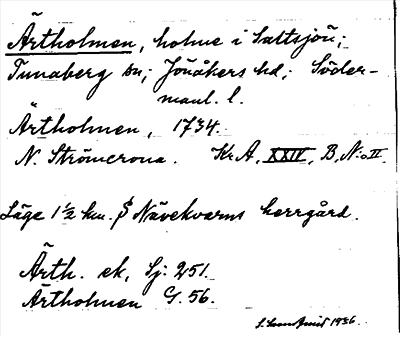 Ärtholmen, holme i Saltsjön;
Tunaberg sn; Jönåkers hd; Söder-
manl. l.
Ärtholmen, 1734.
N. Strömcrona. Kr. A, XXIV, B, N:o II.
Läge 1 ½ km. S Nävekvarns herrgård.
Ärth. ek, Sj. 251.
Ärtholmen G. 56.
1936.